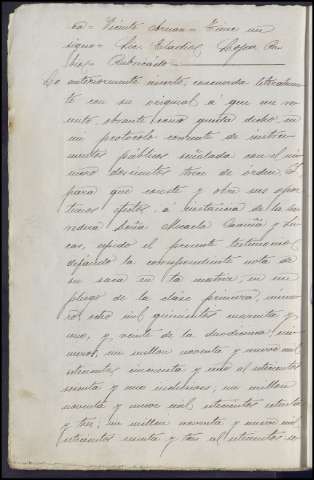 ra = Vicente Arnau = Tiene un
signo = Lic. Eladio López Ru
bio = Rubricado
Lo anteriormente inserto, concuerda literalmen
te con su original á que me re
mito, obrante como queda dicho en
mi protocolo corriente de instru
mentos públicos señalada con el nú
mero doscientos trece de orden. Y
para que conste y obre sus opor
tunos efectos, á instancia de la he
redera Doña Micaela
expido el presente testimonio,
dejando la correspondiente nota de
su saca en la matriz, en un
pliego de la clase primera, núme
ro, ocho mil quinientos noventa y
uno, y veinte de la duodécima, nú
meros, un millon noventa y nueve mil
setecientos cincuenta y uno al setecientos
sesenta y uno inclusives; un millon
noventa y nueve mil setecientos setenta
y tres; un millon noventa y nueve mil
setecientos sesenta y tres al setecientos se